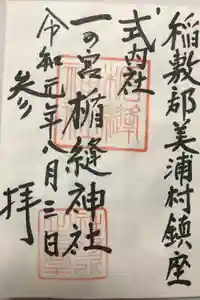 稲敷郡美浦村鎮座
式内社
一の宮楯縫神社
令和元年八月三日
参拝